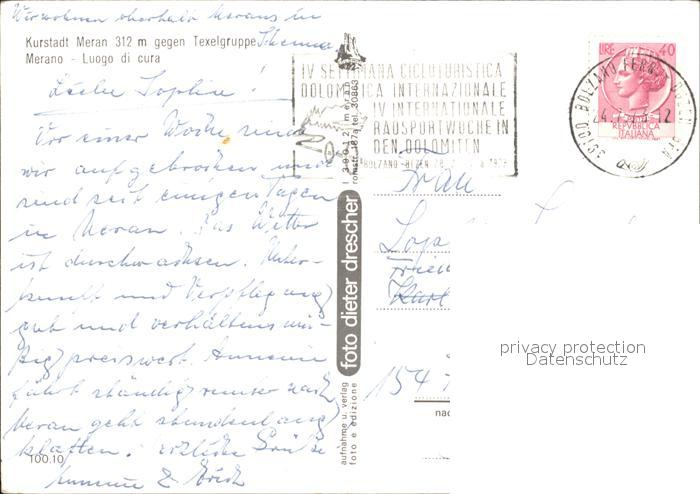 Wir wohnen oberhalb Merans in
Schenna
Kurstadt Meran 312 m gegen Texelgruppe
Merano - Luogo di cura
Liebe Sophie!
Vor einer Woche sind
wir aufgebrochen und
sind seit einigen Tagen
in Meran. Das Wetter
ist durchwachsen. Unter-
kunft und Verpflegung
gut und verhältnismäs-
sig preiswert. Annemie
fährt ständig runter nach
Meran geht stundenlang
klaffen. Herzliche Grüße
Annemie & Erich
100.10
IV SETTIMANA CICLOTURISTICA
DOLOMITICA INTERNAZIONALE
IV INTERNATIONALE
RADSPORTWOCHE IN
DEN DOLOMITEN
BOLZANO-BOZEN
LIRE 40
REPVBBLICA
ITALIANA
39100 BOLZANO FERROVIA
foto dieter drescher
I 39012 meran
romstr. 187a tel. 30863
aufnahme u. verlag
foto e edizione
Frau
154
nac
privacy protection
Datenschutz